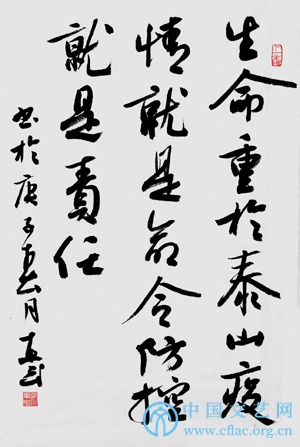 生命重於泰山疫
情就是命令防控
就是責任
书於庚子月
中国文艺网
www.cflac.org.cn